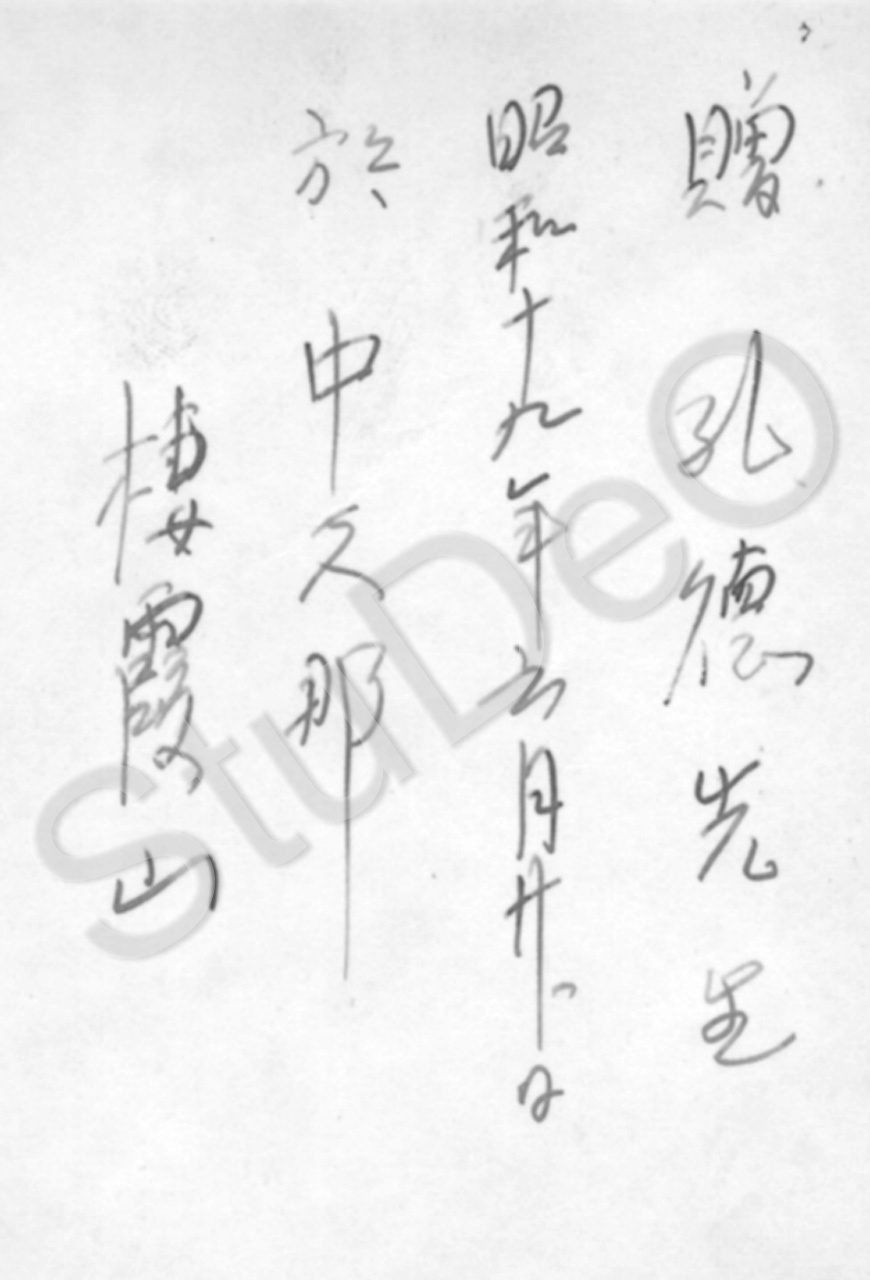 贈 孔德先生
昭和十九年五月廿八日
於 中久那
棲霞山
StuDeO